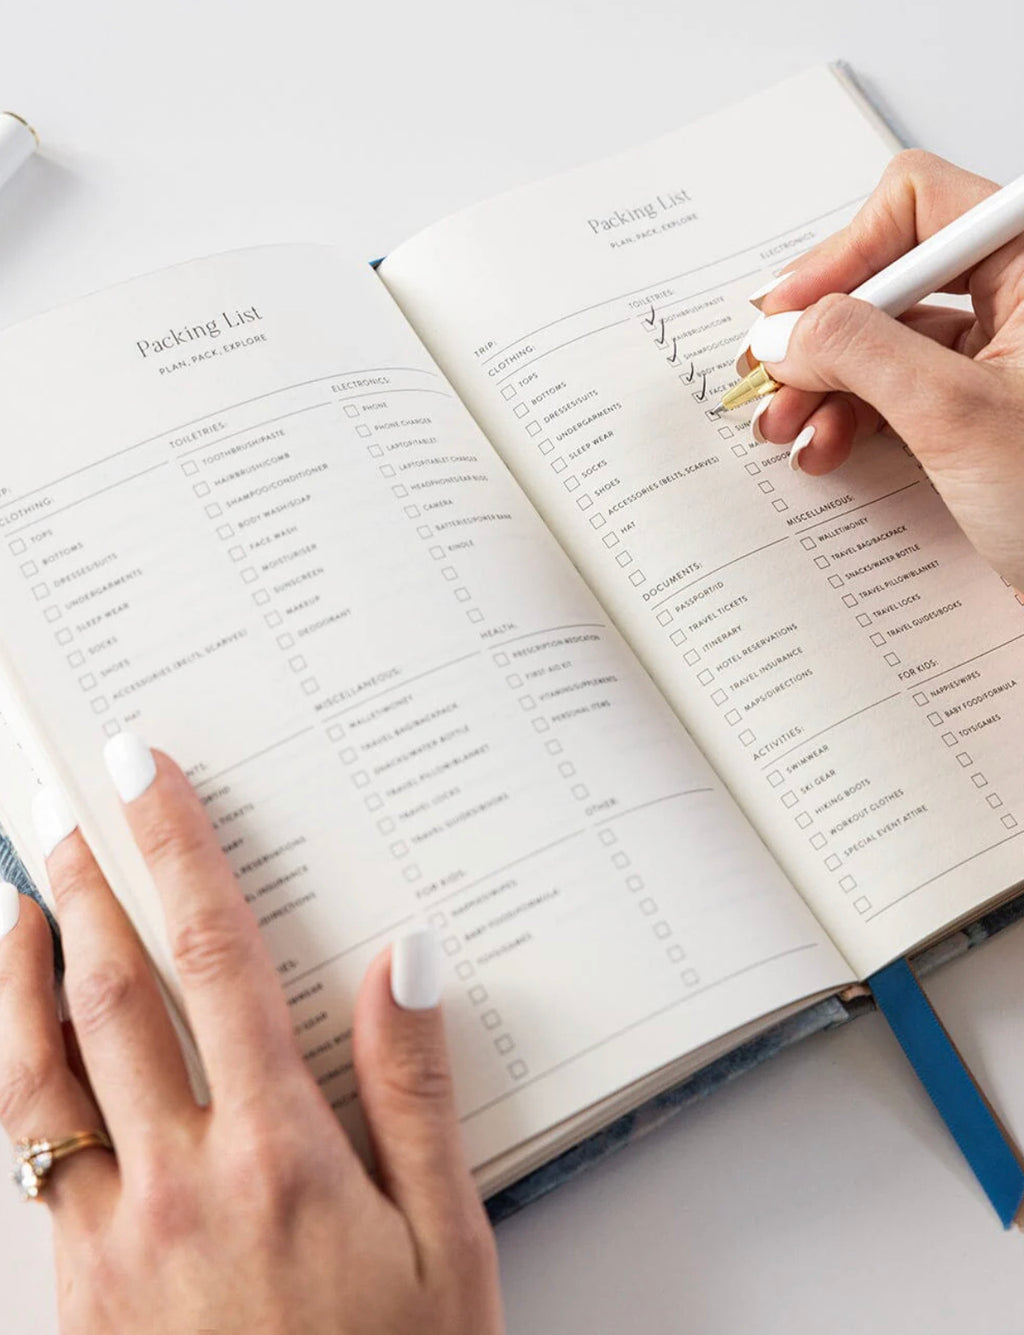 Packing List
PLAN, PACK, EXPLORE
CLOTHING:
TOPS
BOTTOMS
DRESSES/SUITS
UNDERGARMENTS
SLEEP WEAR
SOCKS
SHOES
ACCESSORIES (BELTS, SCARVES)
HAT
TOILETRIES:
TOOTHBRUSH/PASTE
HAIRBRUSH/COMB
SHAMPOO/CONDITIONER
BODY WASH/SOAP
FACE WASH
MOISTURISER
SUNSCREEN
MAKEUP
DEODORANT
ELECTRONICS:
PHONE
PHONE CHARGER
LAPTOP/TABLET
LAPTOP/TABLET CHARGER
HEADPHONES/EAR BUDS
CAMERA
BATTERIES/POWER BANK
KINDLE
HEALTH:
PRESCRIPTION MEDICATION
FIRST AID KIT
VITAMINS/SUPPLEMENTS
PERSONAL ITEMS
MISCELLANEOUS:
WALLET/MONEY
TRAVEL BAG/BACKPACK
SNACKS/WATER BOTTLE
TRAVEL PILLOW/BLANKET
TRAVEL LOCKS
TRAVEL GUIDES/BOOKS
OTHER:
FOR KIDS:
NAPPIES/WIPES
BABY FOOD/FORMULA
TOYS/GAMES
Packing List
PLAN, PACK, EXPLORE
TRIP:
CLOTHING:
TOPS
BOTTOMS
DRESSES/SUITS
UNDERGARMENTS
SLEEP WEAR
SOCKS
SHOES
ACCESSORIES (BELTS, SCARVES)
HAT
TOILETRIES:
TOOTHBRUSH/PASTE
HAIRBRUSH/COMB
SHAMPOO/CONDI
BODY WASH
FACE WA
SUN
MA
DEODOR
ELECTRONICS:
DOCUMENTS:
PASSPORT/ID
TRAVEL TICKETS
ITINERARY
HOTEL RESERVATIONS
TRAVEL INSURANCE
MAPS/DIRECTIONS
MISCELLANEOUS:
WALLET/MONEY
TRAVEL BAG/BACKPACK
SNACKS/WATER BOTTLE
TRAVEL PILLOW/BLANKET
TRAVEL LOCKS
TRAVEL GUIDES/BOOKS
ACTIVITIES:
SWIMWEAR
SKI GEAR
HIKING BOOTS
WORKOUT CLOTHES
SPECIAL EVENT ATTIRE
FOR KIDS:
NAPPIES/WIPES
BABY FOOD/FORMULA
TOYS/GAMES